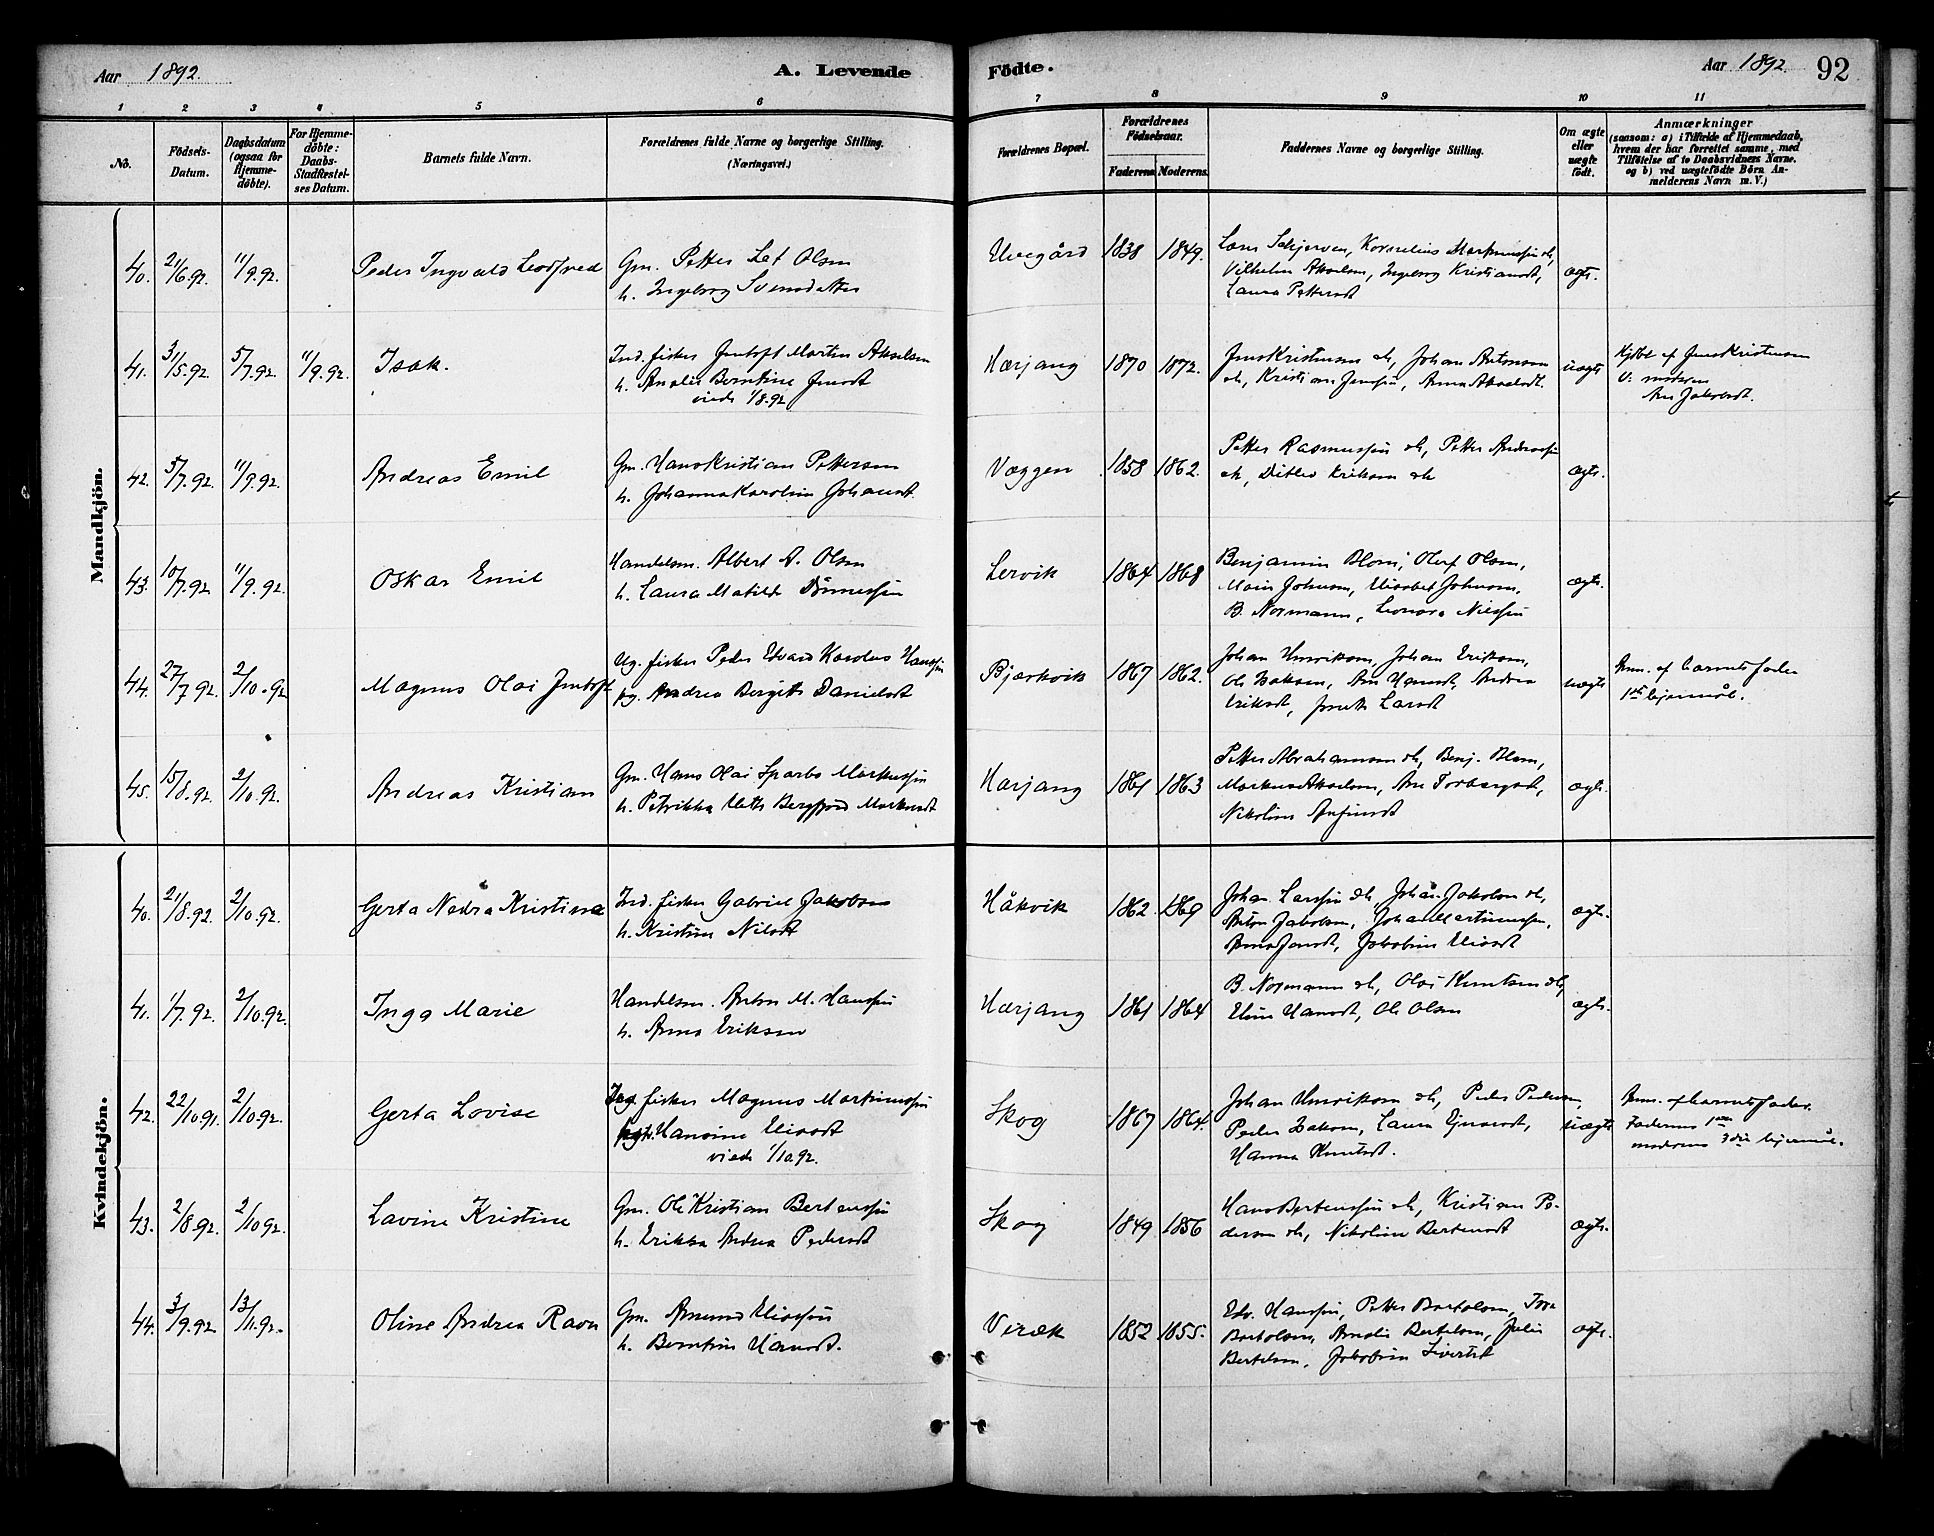 Aar 1892.
A. Levende
Födte.
Aar 1892.
92
1 2 3 4 5 6 7 8 9 10 11
No.
Födsels-Datum.
Daabsdatum (ogsaa for Hjemmedöbte).
For Hjemmedöbte: Daabs-Stadfæstelses Datum.
Barnets fulde Navn.
Forældrenes fulde Navne og borgerlige Stilling.
(Næringsvei.)
Forældrenes Bopæl.
Forældrenes Födselsaar.
Faderens Moderens.
Faddernes Navne og borgerlige Stilling.
Om ægte eller uægte födt.
Anmærkninger
(saasom: a) i Tilfælde af Hjemmedaab,
hvem der har forrettet samme, med
Tilföielse af to Daabsvidners Navne.
og b) ved uægtefödte Börn An-
melderens Navn m. V.)
Mandkjön.
40. 21/6.92. 11/9.92. Peder Ingvald Leodfred
Gm. Petter Let Olsen
h. Ingeborg Svensdatter
1838 1849.
Lars Skjerven, Kornelius
Vilhelm Akselsen, Ingeborg Kristiansdt,
Laura Pettersdt
ægte.
41. 31/5.92. 5/7.92. 11/9.92. Isak.
Ind. fisker Jentoft Martin Akselsen
h. Analie Berntine Jensdt
viede 1/8.92
Hærjang 1870 1872.
Jens Kristensen ok, Johan Antonsen
ok, Kristian Jenssen, Anna Akselsdt.
uægte
Hjdbt af Jens Kristensen
V: moderen
Ane Jakobsdt.
42. 5/7.92. 11/9.92. Andreas Emil
Gm. Hans Kristian Pettersen
h. Johanna Karolin Johansdt.
Væggen 1858 1862.
Petter Rasmussen ok, Petter Andreassen
ok, Ditlev Eriksen ok
ægte.
43. 10/7.92. 11/9.92. Oskar Emil
Handelsm. Albert A. Olsen
h. Laura Matilde Dønnessen
Lervik 1864 1868
Benjamin Blom, Oluf Olsen,
Marie Johnsen, Elisabet Johnsen,
B. Normann, Leonora Nilssen
ægte.
44. 27/7.92. 2/10.92 Magnus Olai Jentoft
Ug. fisker Peder Edvard Karolus Hanssen
pg. Andrea Bergitte Danielsdt
Bjærkvik 1867 1862.
Johan Henriksen, Johan Eriksen,
Ole Isaksen, Ane Hansdt, Andrea
Eriksdt, Larsdt
uægte
Anm. af barnets fader
1ste leiermål.
45. 15/8.92. 2/10.92. Andreas Kristian
Gm. Hans Olai Sparbo Markussen
h. Petrikka Bergfjord Markusdt
Harjang 1861 1863
Petter Abrahamsen ok, Benj. Blom,
Markus Akselsen, Ane Torbergsdt,
Nikoline Anfinsdt
ægte.
Kvindekjön.
40. 21/8.92 2/10.92. Gerta Nedra Kristine
Ind. fisker Gabriel Jakobsen
h. Kristine Nilsdt
Håkvik 1862 1869
Johan Larssen ok, Johan Jakobsen ok,
Anton Jakobsen, Johan Martinussen,
Anna Jensdt, Jakobine Eliasdt
ægte.
41. 1/7.92. 2/10.92. Inga Marie
Handelsm. Anton M. Hanssen
h. Anna Eriksen
Hærjang 1861 1864
B. Normann ok, Olai Knutsen ok,
Eline Hansdt, Ole Olsen
ægte.
42. 22/10.91. 2/10.92. Gerta Lovise
fisker Magnus Martinussen
Hansine Eliasdt
viede 1/10.92.
Skog 1867 1864.
Johan Henriksen ok, Peder Pedersen,
Peder Isaksen, Laura Ejnarsdt,
Hanna Knutsdt.
uægte
Anm. af barnets fader.
Faderens 1ste
moderens 3die leiermål.
43. 2/8.92. 2/10.92. Lavine Kristine
Gm. Ole Kristian Bertenssen
h. Erikka Andrea Pedersdt
Skog 1849 1856
Hans Bertenssen ok, Kristian Pe-
dersen ok, Nikoline Bertensdt
ægte.
44. 3/9.92 13/11.92. Oline Andrea Ravn
Gm. Amund Eliassen
h. Berntine Hansdt.
Veræk 1852 1855.
Edv. Hanssen, Petter Bertelsen,
Bertelsen, Amalie Bertelsen, Julie
Bertelsen, Jakobine Sivertsdt
ægte.